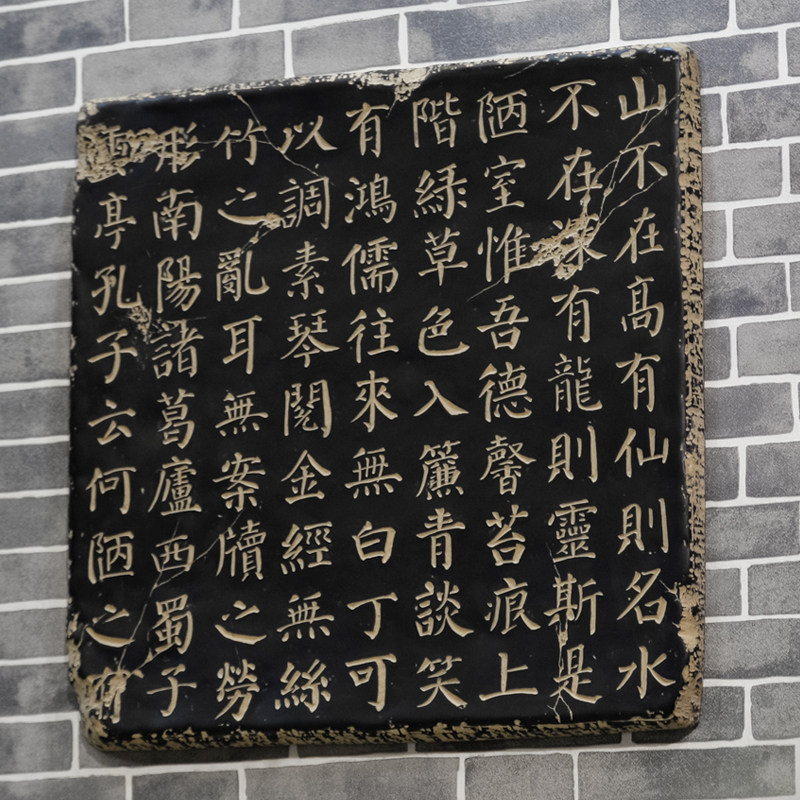 山不在髙有仙則名水
不在深有龍則靈斯是
陋室惟吾德馨苔痕上
階緑草色入簾青談笑
有鴻儒往來無白丁可
以調素琴閱金經無絲
竹之亂耳無案牘之勞
形南陽諸葛廬西蜀子
雲亭孔子云何陋之有